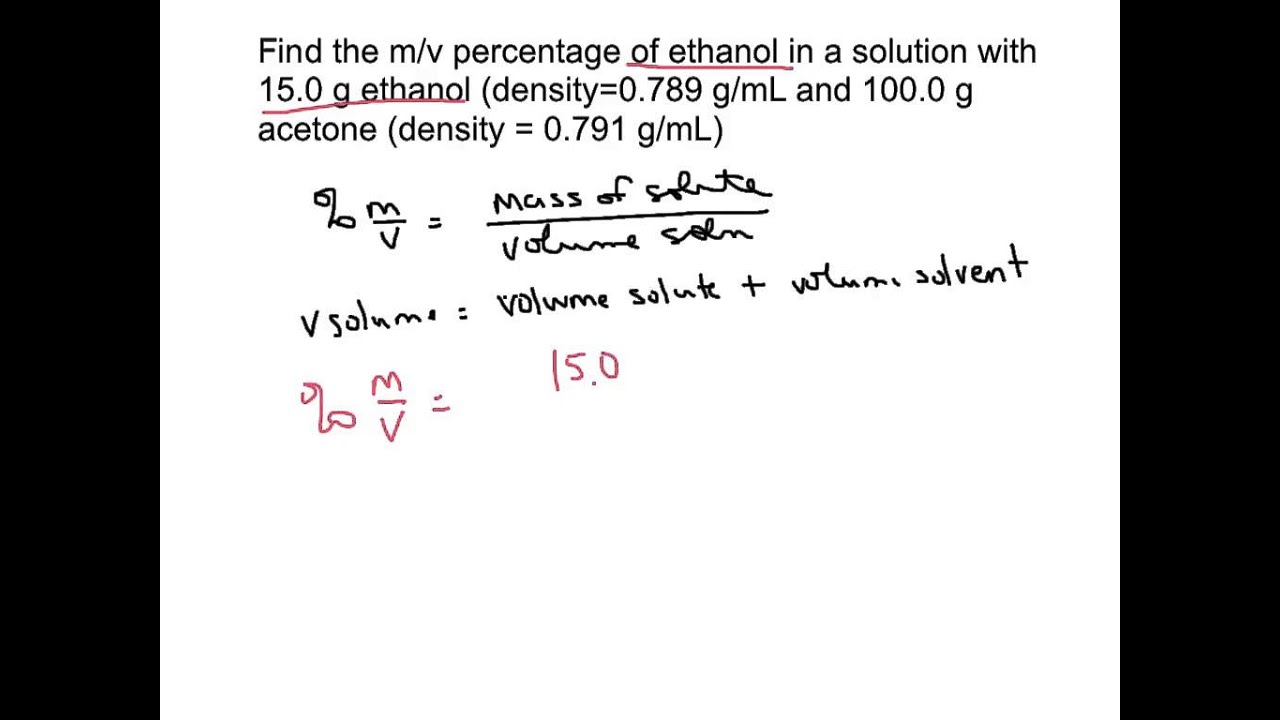 Find the m/v percentage of ethanol in a solution with
15.0 g ethanol (density=0.789 g/mL and 100.0 g
acetone (density = 0.791 g/mL)
% m/v = mass of solute / volume soln
v solume = volume solute + volume solvent
% m/v = 15.0